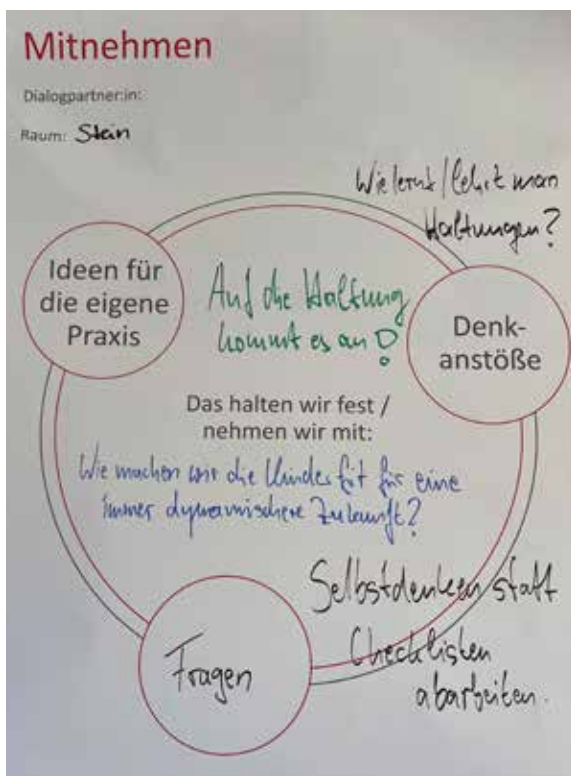 Mitnehmen
Dialogpartner:in:
Raum: Stein
Wie lernt / lehrt man
Haltungen?
Ideen für
die eigene
Praxis
Auf die Haltung
kommt es an!
Denk-
anstöße
Das halten wir fest /
nehmen wir mit:
Wie machen wir die Kinder fit für eine
immer dynamischere Zukunft?
Selbstdenken statt
Checklisten
abarbeiten.
Fragen